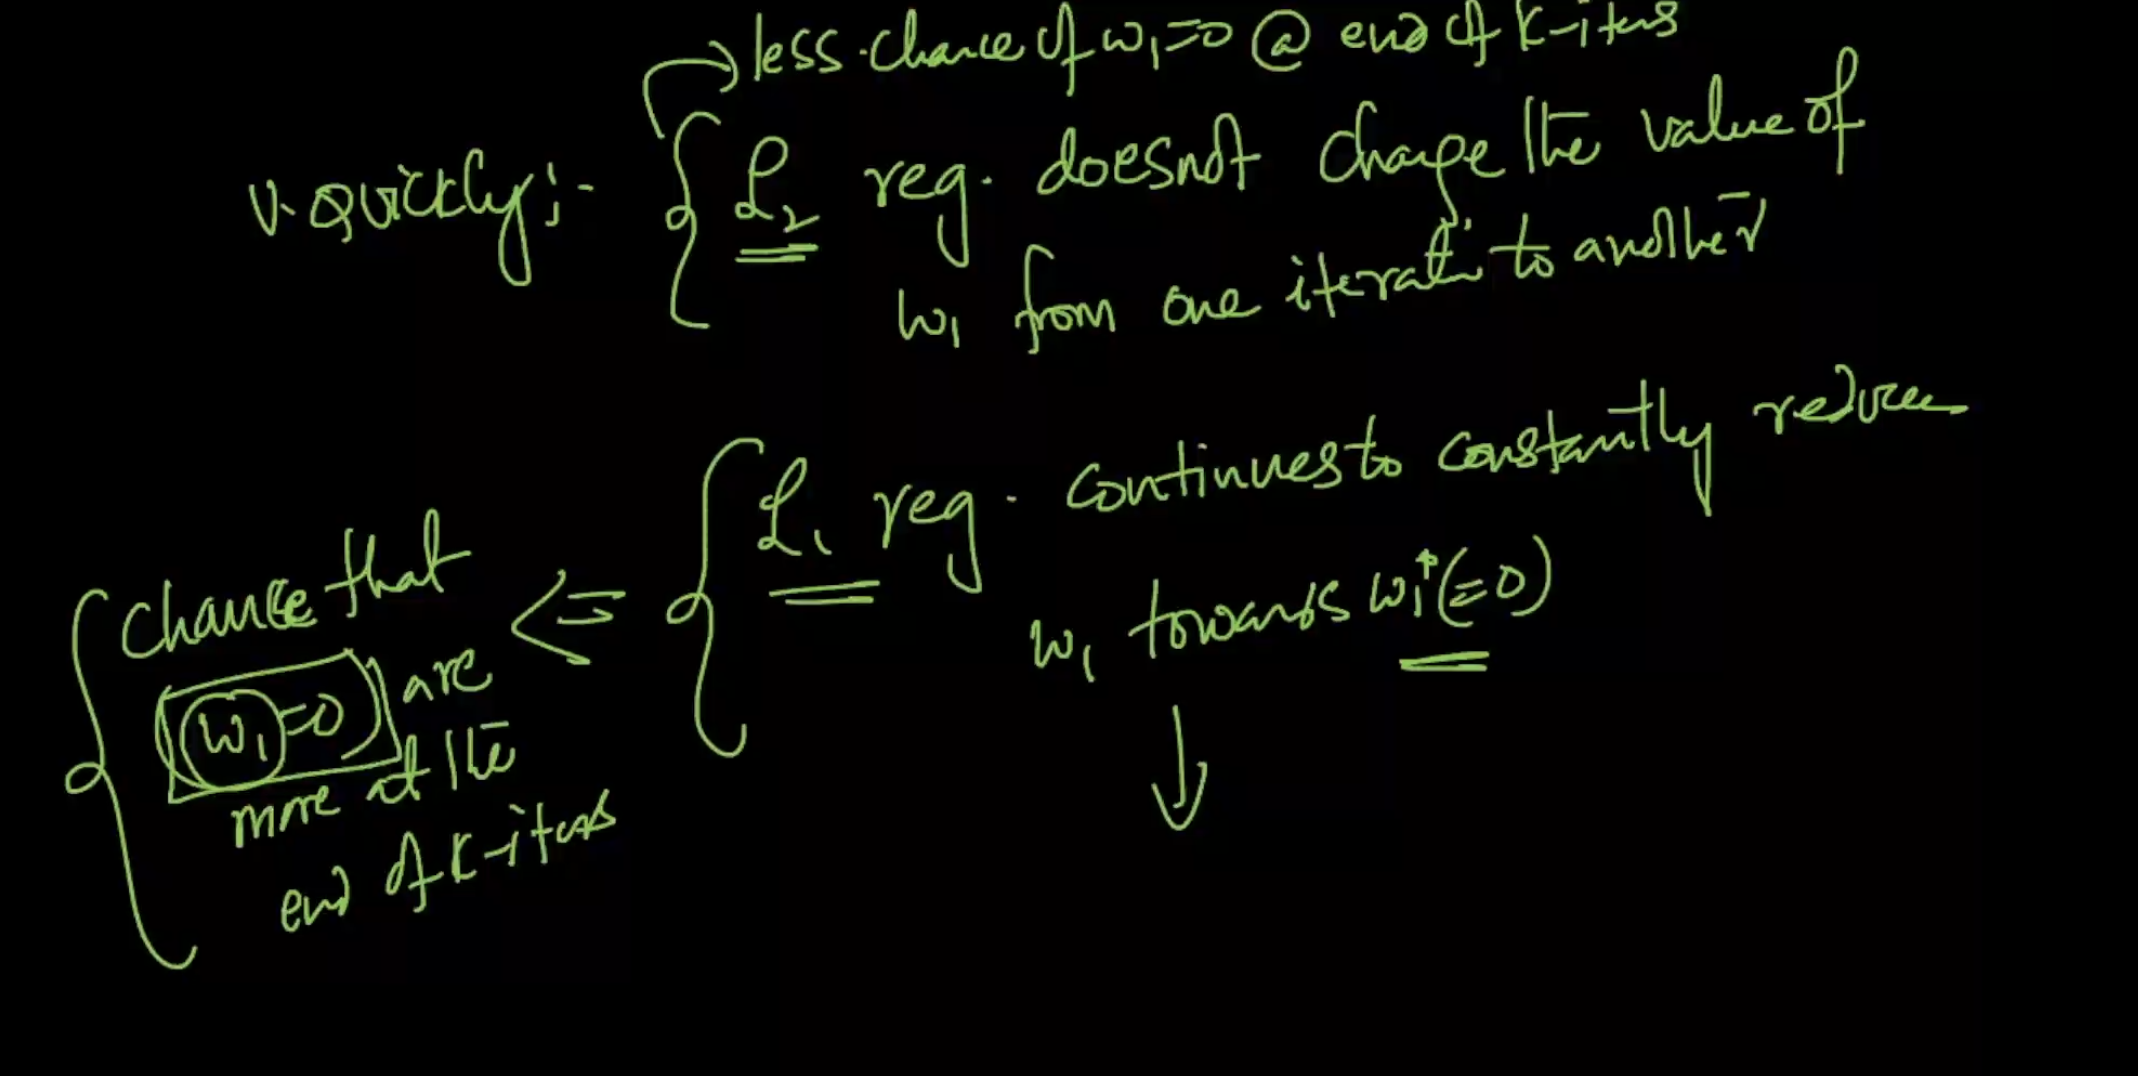 less chance of w₁=0 @ end of k-iters
v. quickly:- L₂ reg. doesnot change the value of
w₁ from one iterati to another
L₁ reg. continues to constantly reduce
w₁ towards w₁*(=0)
<= 
Chance that
w₁=0 are
more at the
end of k-iters